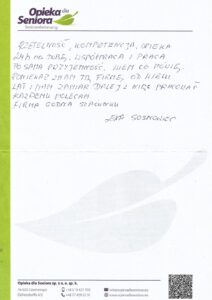 Opieka dla
Seniora
RZETELNOŚĆ, KOMPETENCJA, OPIEKA
24H NA DOBĘ, WSPÓŁPRACA I PRACA
TO SAMA PRZYJEMNOŚĆ. WIEM CO MÓWIĘ,
PONIEWAŻ ZNAM TĄ FIRMĘ OD WIELU
LAT I MAM ZAMIAR DALEJ Z NIĄ PRACOWAĆ
KAŻDEMU POLECAM
FIRMA GODNA SZACUNKU
Opieka dla Seniora sp. z o. o. sp. k.